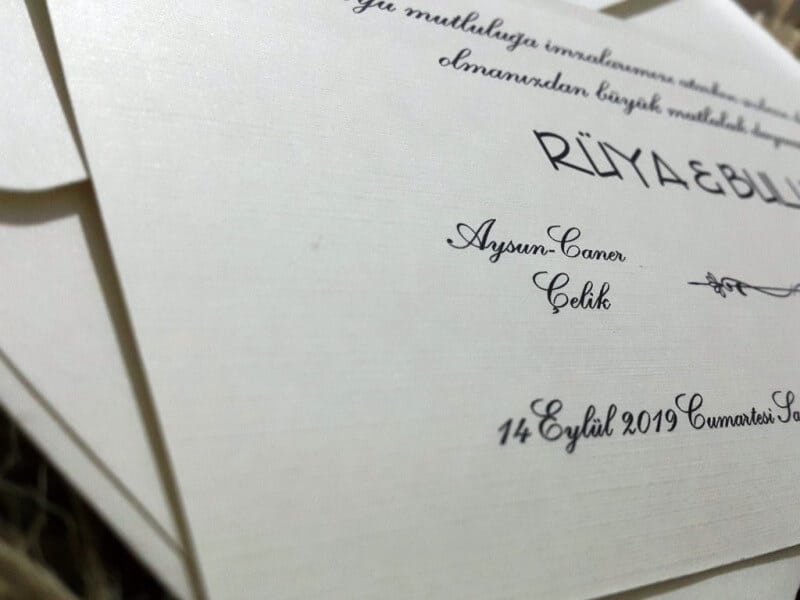 mutluluğa imzalarımızı atarken
olmanızdan büyük mutluluk
RÜYA & BULU
Aysun-Caner
Çelik
14 Eylül 2019 Cumartesi Sa